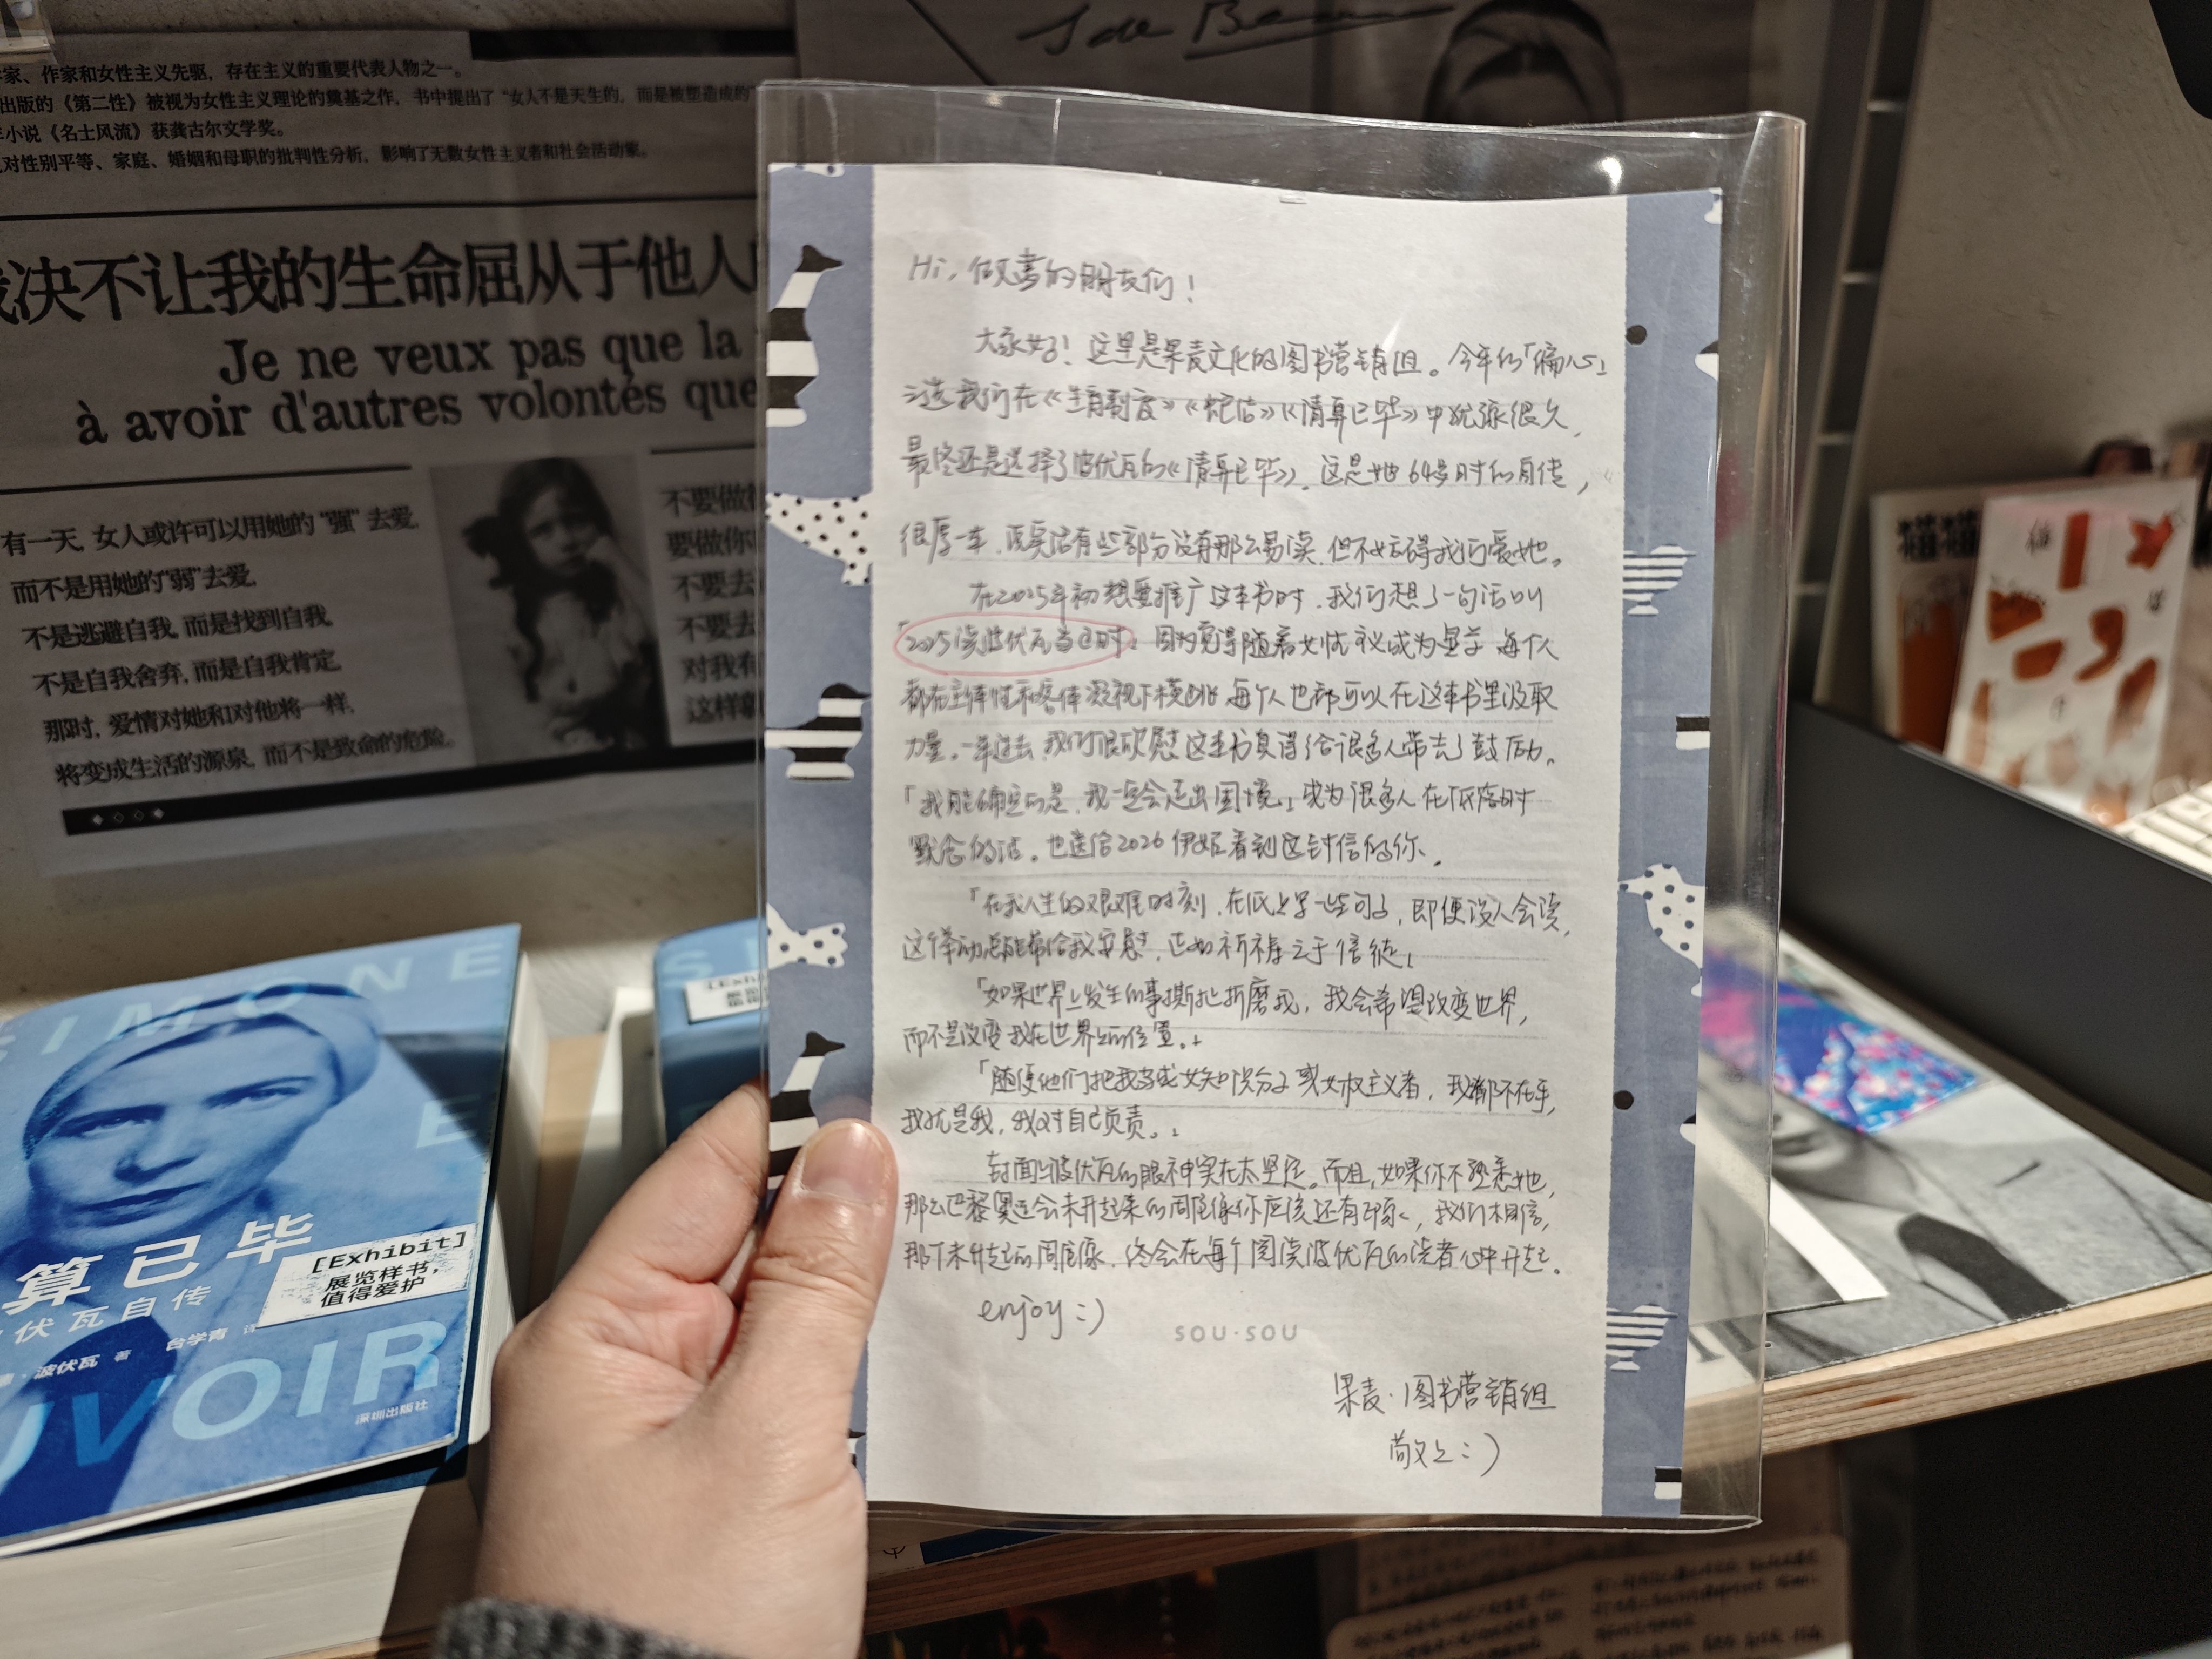 Sde Beau
家、作家和女性主义先驱，存在主义的重要代表人物之一。
出版的《第二性》被视为女性主义理论的奠基之作，书中提出了“女人不是天生的，而是被塑造成的”
小说《名士风流》获龚古尔文学奖。
对性别平等、家庭、婚姻和母职的批判性分析，影响了无数女性主义者和社会活动家。
我决不让我的生命屈从于他人
Je ne veux pas que la
à avoir d'autres volontés que
有一天，女人或许可以用她的“强”去爱，
而不是用她的“弱”去爱，
不是逃避自我，而是找到自我
不是自我舍弃，而是自我肯定，
那时，爱情对她和对他将一样，
将变成生活的源泉，而不是致命的危险。
不要做
要做你
不要去
不要去
对我有
这样
Hi，做书的朋友们！
大家好！这里是果麦文化的图书营销组。今年的「偏心」
之选我们在《生育制度》《蛇结》《清算已毕》中犹豫很久，
最终还是选择了波伏瓦的《清算已毕》。这是她64岁时的自传，
很厚一本，说实话有些部分没有那么易读，但不妨碍我们爱她。
在2025年初想要推广这本书时，我们想了一句话叫
「2025读波伏瓦当时」因为觉得随着女性主义成为显学 每个人
都在主体性和客体凝视下横跳 每个人也都可以在这本书里汲取
力量。一年过去，我们很欣慰这本书真得给很多人带去了鼓励。
「我能确定的是，我一定会走出困境。」成为很多人在低落时
默念的话。也送给2026伊始看到这封信的你。
「在我人生的艰难时刻，在纸上写一些句子，即便没人会读，
这个举动总能带给我安慰，正如祈祷之于信徒」
「如果世界上发生的事撕扯折磨我，我会希望改变世界，
而不是改变我在世界上的位置。」
「随便他们把我当成女知识分子或女权主义者，我都不在乎，
我就是我，我对自己负责。」
封面上波伏瓦的眼神实在太坚定。而且，如果你不熟悉她，
那么巴黎奥运会未升起来的雕像你应该还有印象，我们相信，
那个未升起的雕像，终会在每个阅读波伏瓦的读者心中升起。
enjoy :)
SOU·SOU
果麦·图书营销组
敬上 :)
SIMONE
算已毕
伏瓦自传
波伏瓦 著
台学青 译
[Exhibit]
展览样书，
值得爱护
UVOIR
深圳出版社